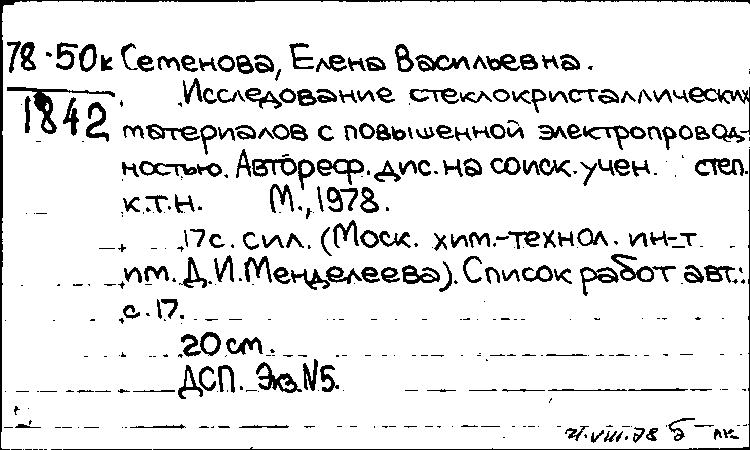 78-50к Семенова, Елена Васильевна.
1842 Исследование стеклокристаллических
материалов с повышенной электропровод-
ностью. Автореф. дис. на соиск. учен. степ.
к.т.н. М., 1978.
17 с. с ил. (Моск. хим.-технол. ин-т
им. Д.И. Менделеева). Список работ авт.:
с. 17.
20 см.
ДСП. Экз. №5.
VIII.78